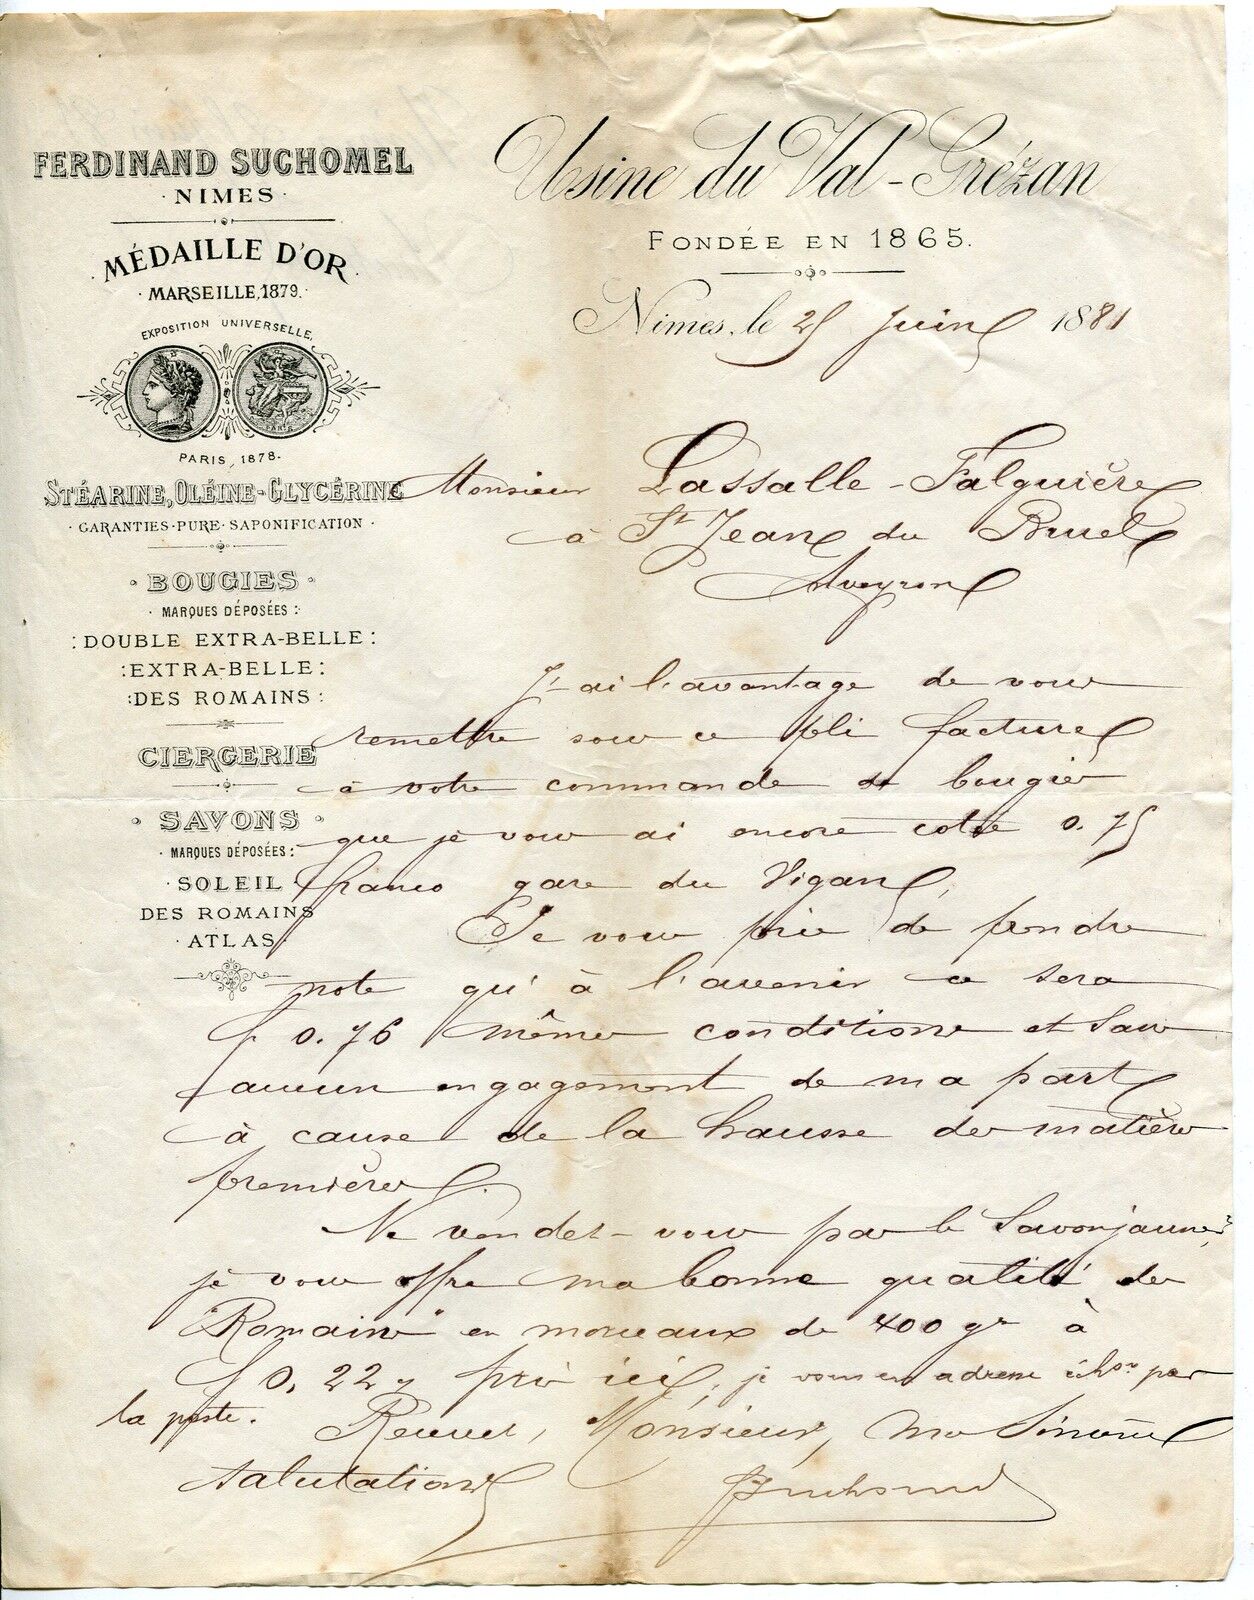 FERDINAND SUCHOMEL
· NIMES ·
MÉDAILLE D'OR
· MARSEILLE, 1879. ·
EXPOSITION UNIVERSELLE,
PARIS, 1878.
STÉARINE, OLÉINE-GLYCÉRINE
· GARANTIES · PURE · SAPONIFICATION ·
· BOUGIES ·
· MARQUES DÉPOSÉES :
: DOUBLE EXTRA-BELLE :
: EXTRA-BELLE :
: DES ROMAINS :
CIERGERIE
· SAVONS ·
· MARQUES DÉPOSÉES :
· SOLEIL ·
DES ROMAINS
· ATLAS ·
Usine du Val-Grézan
FONDÉE EN 1865.
Nîmes, le 25 Juin 1881
Monsieur Lassalle-Falguière
à St Jean du Bruel
Aveyron
J'ai l'avantage de vous
remettre sous ce pli facture
à votre commande de bougies
que je vous ai encore coté 0.75
franco gare du Vigan,
Je vous prie de prendre
note qu'à l'avenir ce sera
f 0.76 mêmes conditions et sans
aucun engagement de ma part
à cause de la hausse des matières
premières.
Ne vendez-vous pas le Savon jaune?
je vous offre ma bonne qualité des
"Romains" en morceaux de 400 gr à
f 0,22 pris ici, je vous en adresse échon par
la poste. Recevez, Monsieur, mes Sincères
salutations